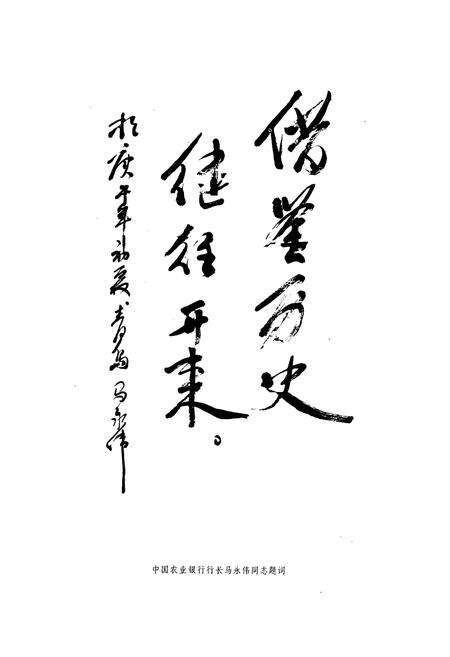 借鉴历史
继往开来。
于庚午年初夏于青岛 马永伟
中国农业银行行长马永伟同志题词